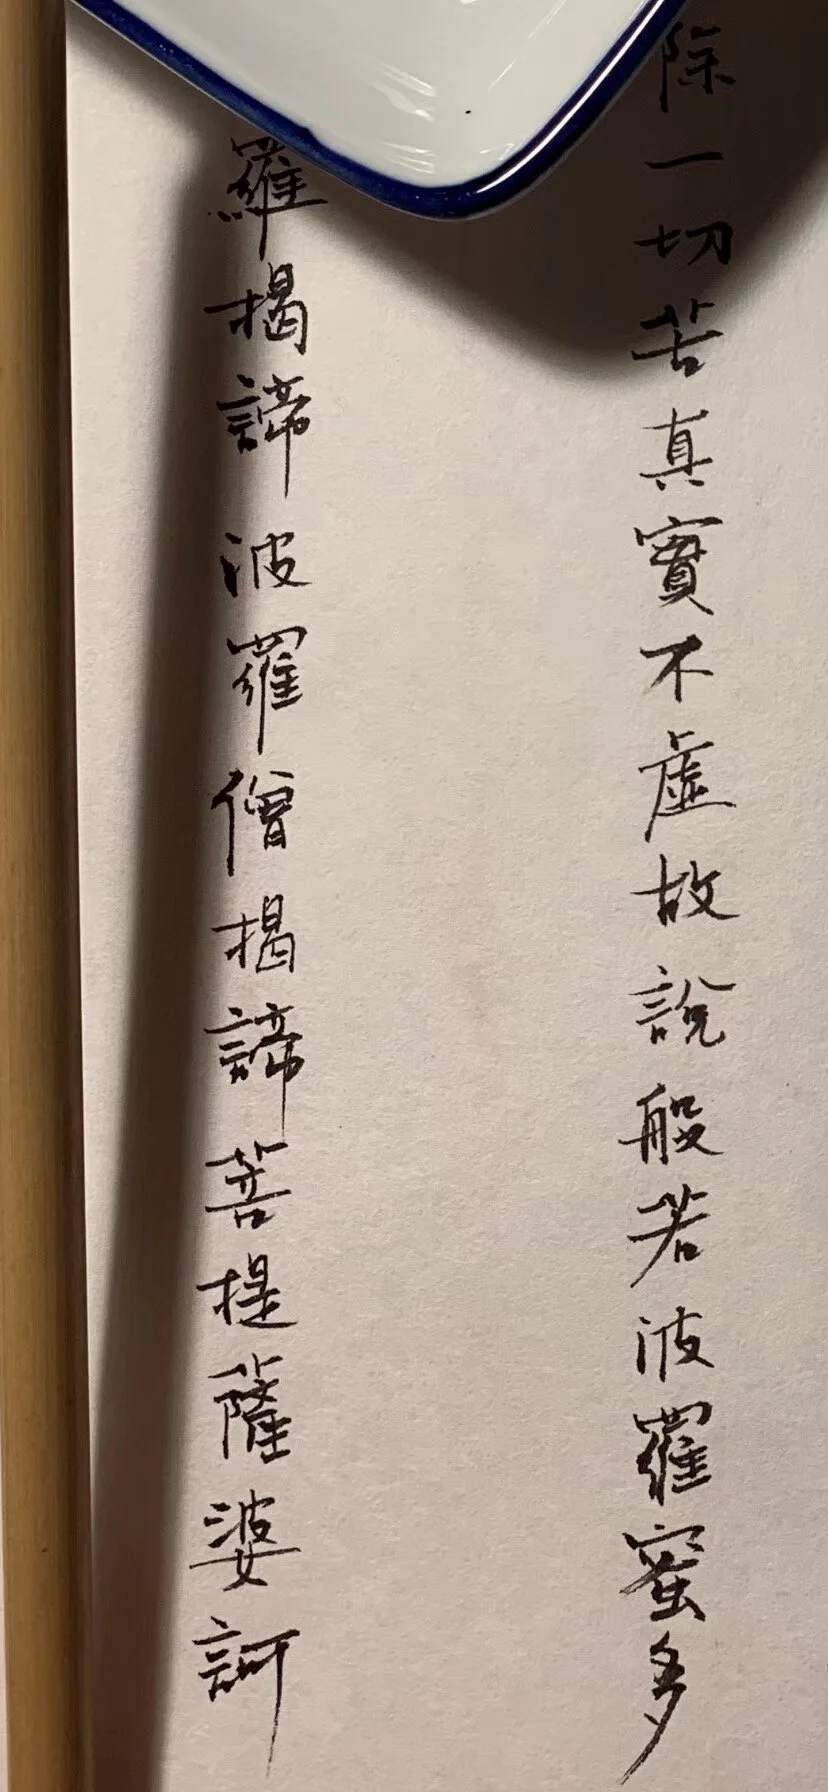 除一切苦真實不虛故說般若波羅蜜多
羅揭諦波羅僧揭諦菩提薩婆訶